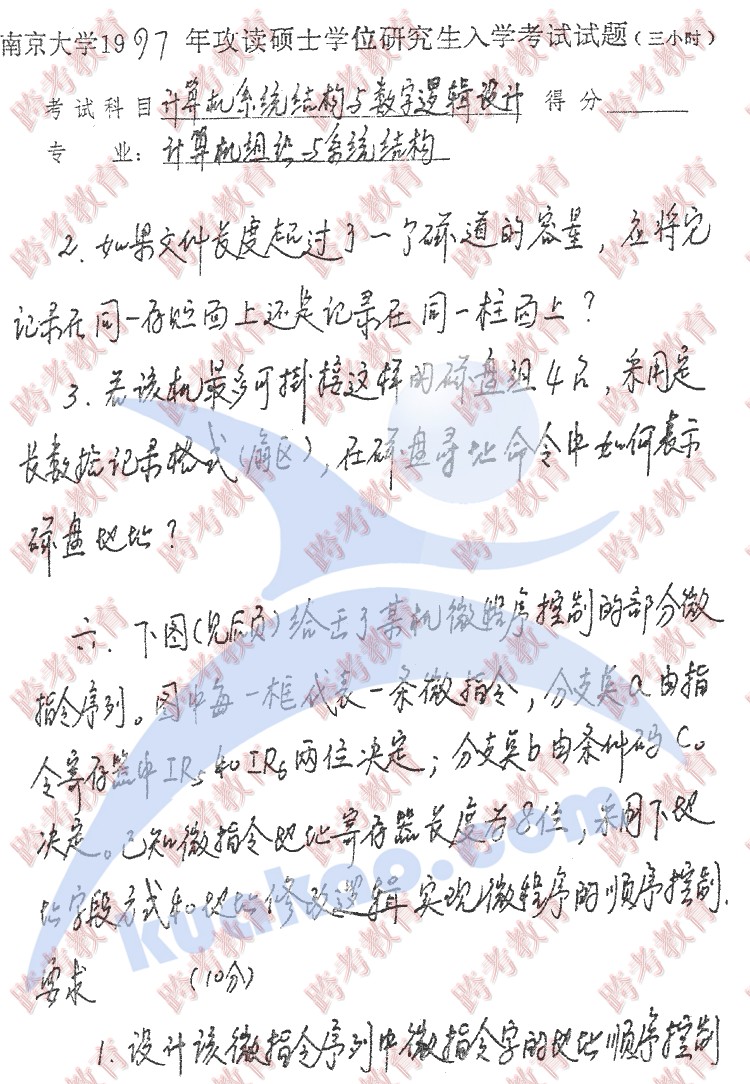 南京大学1997年攻读硕士学位研究生入学考试试题(三小时)
考试科目 计算机系统结构与数字逻辑设计 得分
专 业: 计算机组织与系统结构
2. 如果文件长度超过了一个磁道的容量, 应将它
记录在同一存贮面上还是记录在同一柱面上?
3. 若该机最多可挂接这样的磁盘组4台, 采用定
长数据记录格式(扇区), 在磁盘寻址命令中如何表示
磁盘地址?
六. 下图(见后页)给出了某机微程序控制的部分微
指令序列。图中每一框代表一条微指令, 分支点a由指
令寄存器中IR5和IR6两位决定; 分支点b由条件码C0
决定。已知微指令地址寄存器长度为8位, 采用下地
址字段方式和地址修改逻辑实现微程序的顺序控制.
要求 (10分)
1. 设计该微指令序列中微指令字的地址顺序控制
跨考教育
kuakao.com